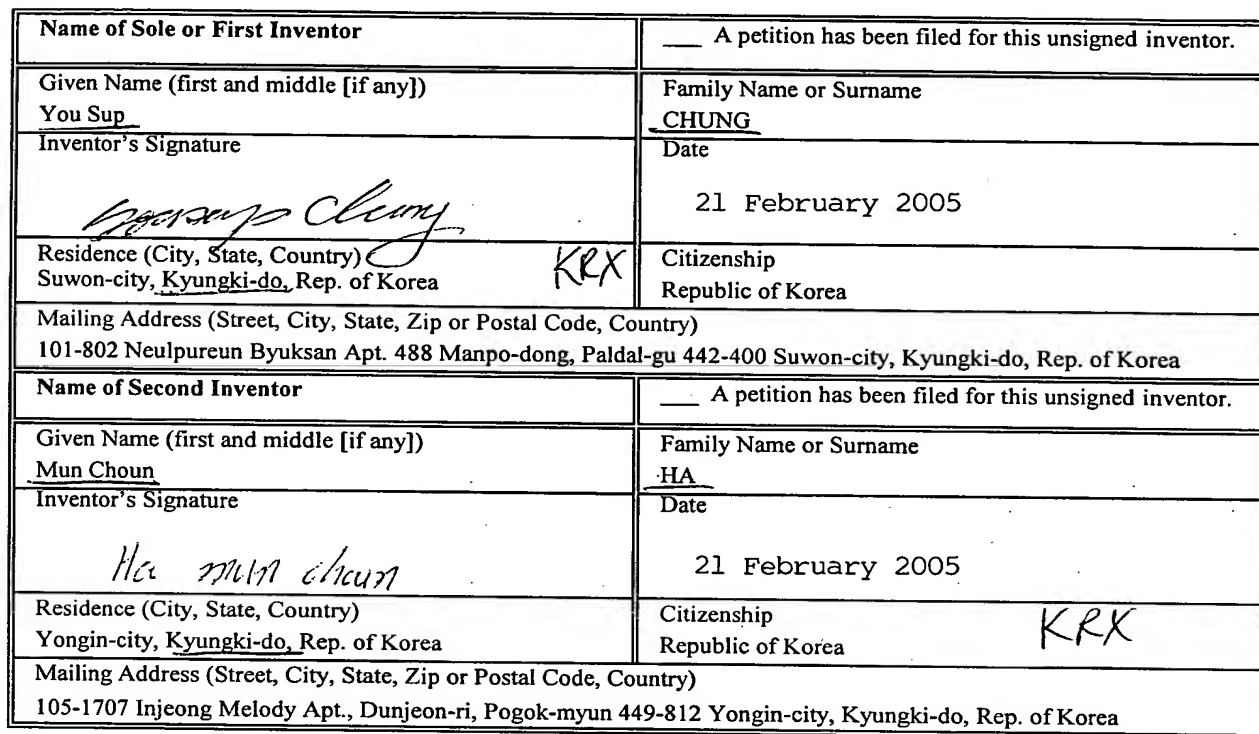 Name of Sole or First Inventor
___ A petition has been filed for this unsigned inventor.
Given Name (first and middle [if any])
You Sup
Family Name or Surname
CHUNG
Inventor's Signature
Chung
Date
21 February 2005
Residence (City, State, Country)
Suwon-city, Kyungki-do, Rep. of Korea
KRX
Citizenship
Republic of Korea
Mailing Address (Street, City, State, Zip or Postal Code, Country)
101-802 Neulpureun Byuksan Apt. 488 Manpo-dong, Paldal-gu 442-400 Suwon-city, Kyungki-do, Rep. of Korea
Name of Second Inventor
___ A petition has been filed for this unsigned inventor.
Given Name (first and middle [if any])
Mun Choun
Family Name or Surname
HA
Inventor's Signature
Ha mun choun
Date
21 February 2005
Residence (City, State, Country)
Yongin-city, Kyungki-do, Rep. of Korea
Citizenship
Republic of Korea
KRX
Mailing Address (Street, City, State, Zip or Postal Code, Country)
105-1707 Injeong Melody Apt., Dunjeon-ri, Pogok-myun 449-812 Yongin-city, Kyungki-do, Rep. of Korea